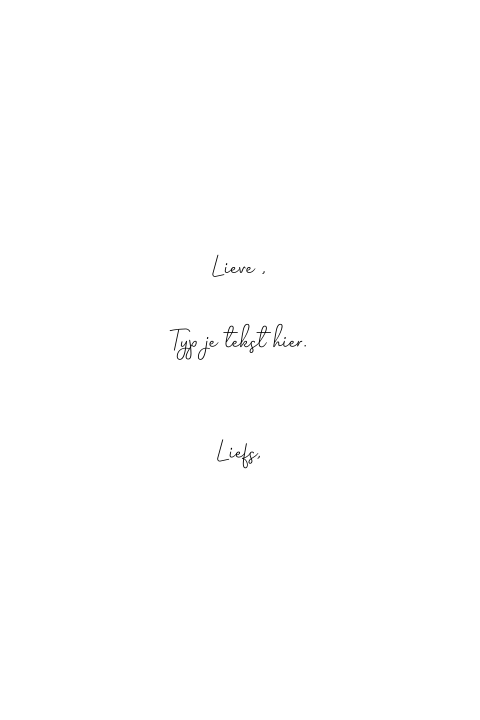 Lieve ,
Typ je tekst hier.
Liefs,